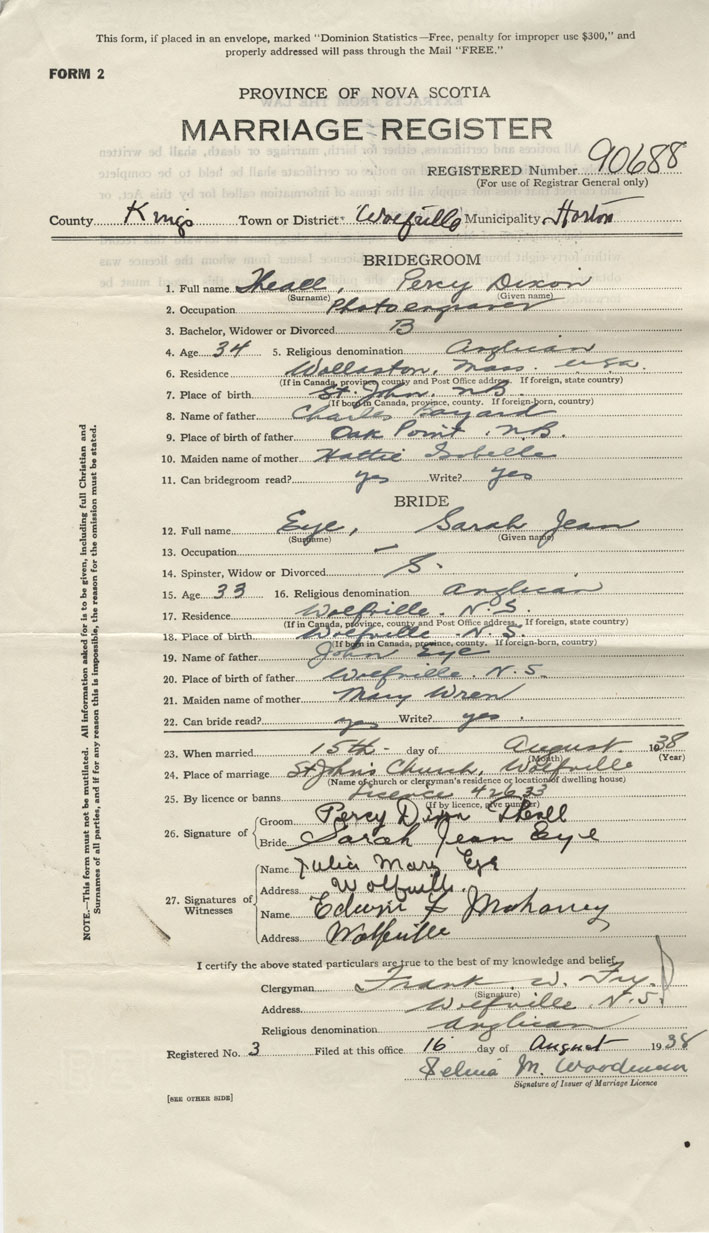 This form, if placed in an envelope, marked "Dominion Statistics—Free, penalty for improper use $300," and
properly addressed will pass through the Mail "FREE."
FORM 2
PROVINCE OF NOVA SCOTIA
MARRIAGE REGISTER
REGISTERED Number 90688
(For use of Registrar General only)
County Kings Town or District Wolfville Municipality Horton
BRIDEGROOM
1. Full name Theall, Percy Dixon
(Surname) (Given name)
2. Occupation Photoengraver
3. Bachelor, Widower or Divorced B
4. Age 34 5. Religious denomination Anglican
6. Residence Wollaston, Mass. U.S.A.
(If in Canada, province, county and Post Office address. If foreign, state country)
7. Place of birth St. John, N.B.
(If born in Canada, province, county. If foreign-born, county)
8. Name of father Charles Bayard
9. Place of birth of father Oak Point. N.B.
10. Maiden name of mother Hattie Isobelle
11. Can bridegroom read? yes Write? yes
BRIDE
12. Full name Eye, Sarah Jean
(Surname) (Given name)
13. Occupation —
14. Spinster, Widow or Divorced S.
15. Age 33 16. Religious denomination Anglican
17. Residence Wolfville. N.S.
(If in Canada, province, county and Post Office address. If foreign, state country)
18. Place of birth Wolfville. N.S.
(If born in Canada, province, county. If foreign-born, country)
19. Name of father John Eye
20. Place of birth of father Wolfville. N.S.
21. Maiden name of mother Mary Wren
22. Can bride read? yes Write? yes.
23. When married 15th- day of August. 1938
(Month) (Year)
24. Place of marriage St John's Church, Wolfville
(Name of church or clergyman's residence or location of dwelling house)
25. By licence or banns Licence 42633
(If by licence, give number)
26. Signature of { Groom Percy Dixon Theall
Bride Sarah Jean Eye
27. Signatures of Witnesses { Name Julia Mary Eye
Address Wolfville.
Name Edwin F Mahoney
Address Wolfville
I certify the above stated particulars are true to the best of my knowledge and belief.
Clergyman Frank W. Fry.
(Signature)
Address Wolfville. N.S.
Religious denomination Anglican
Registered No. 3 Filed at this office 16 day of August 1938
Selina M. Woodman
Signature of Issuer of Marriage Licence
[SEE OTHER SIDE]
NOTE.—This form must not be mutilated. All information asked for is to be given, including full Christian and
Surnames of all parties, and if for any reason this is impossible, the reason for the omission must be stated.